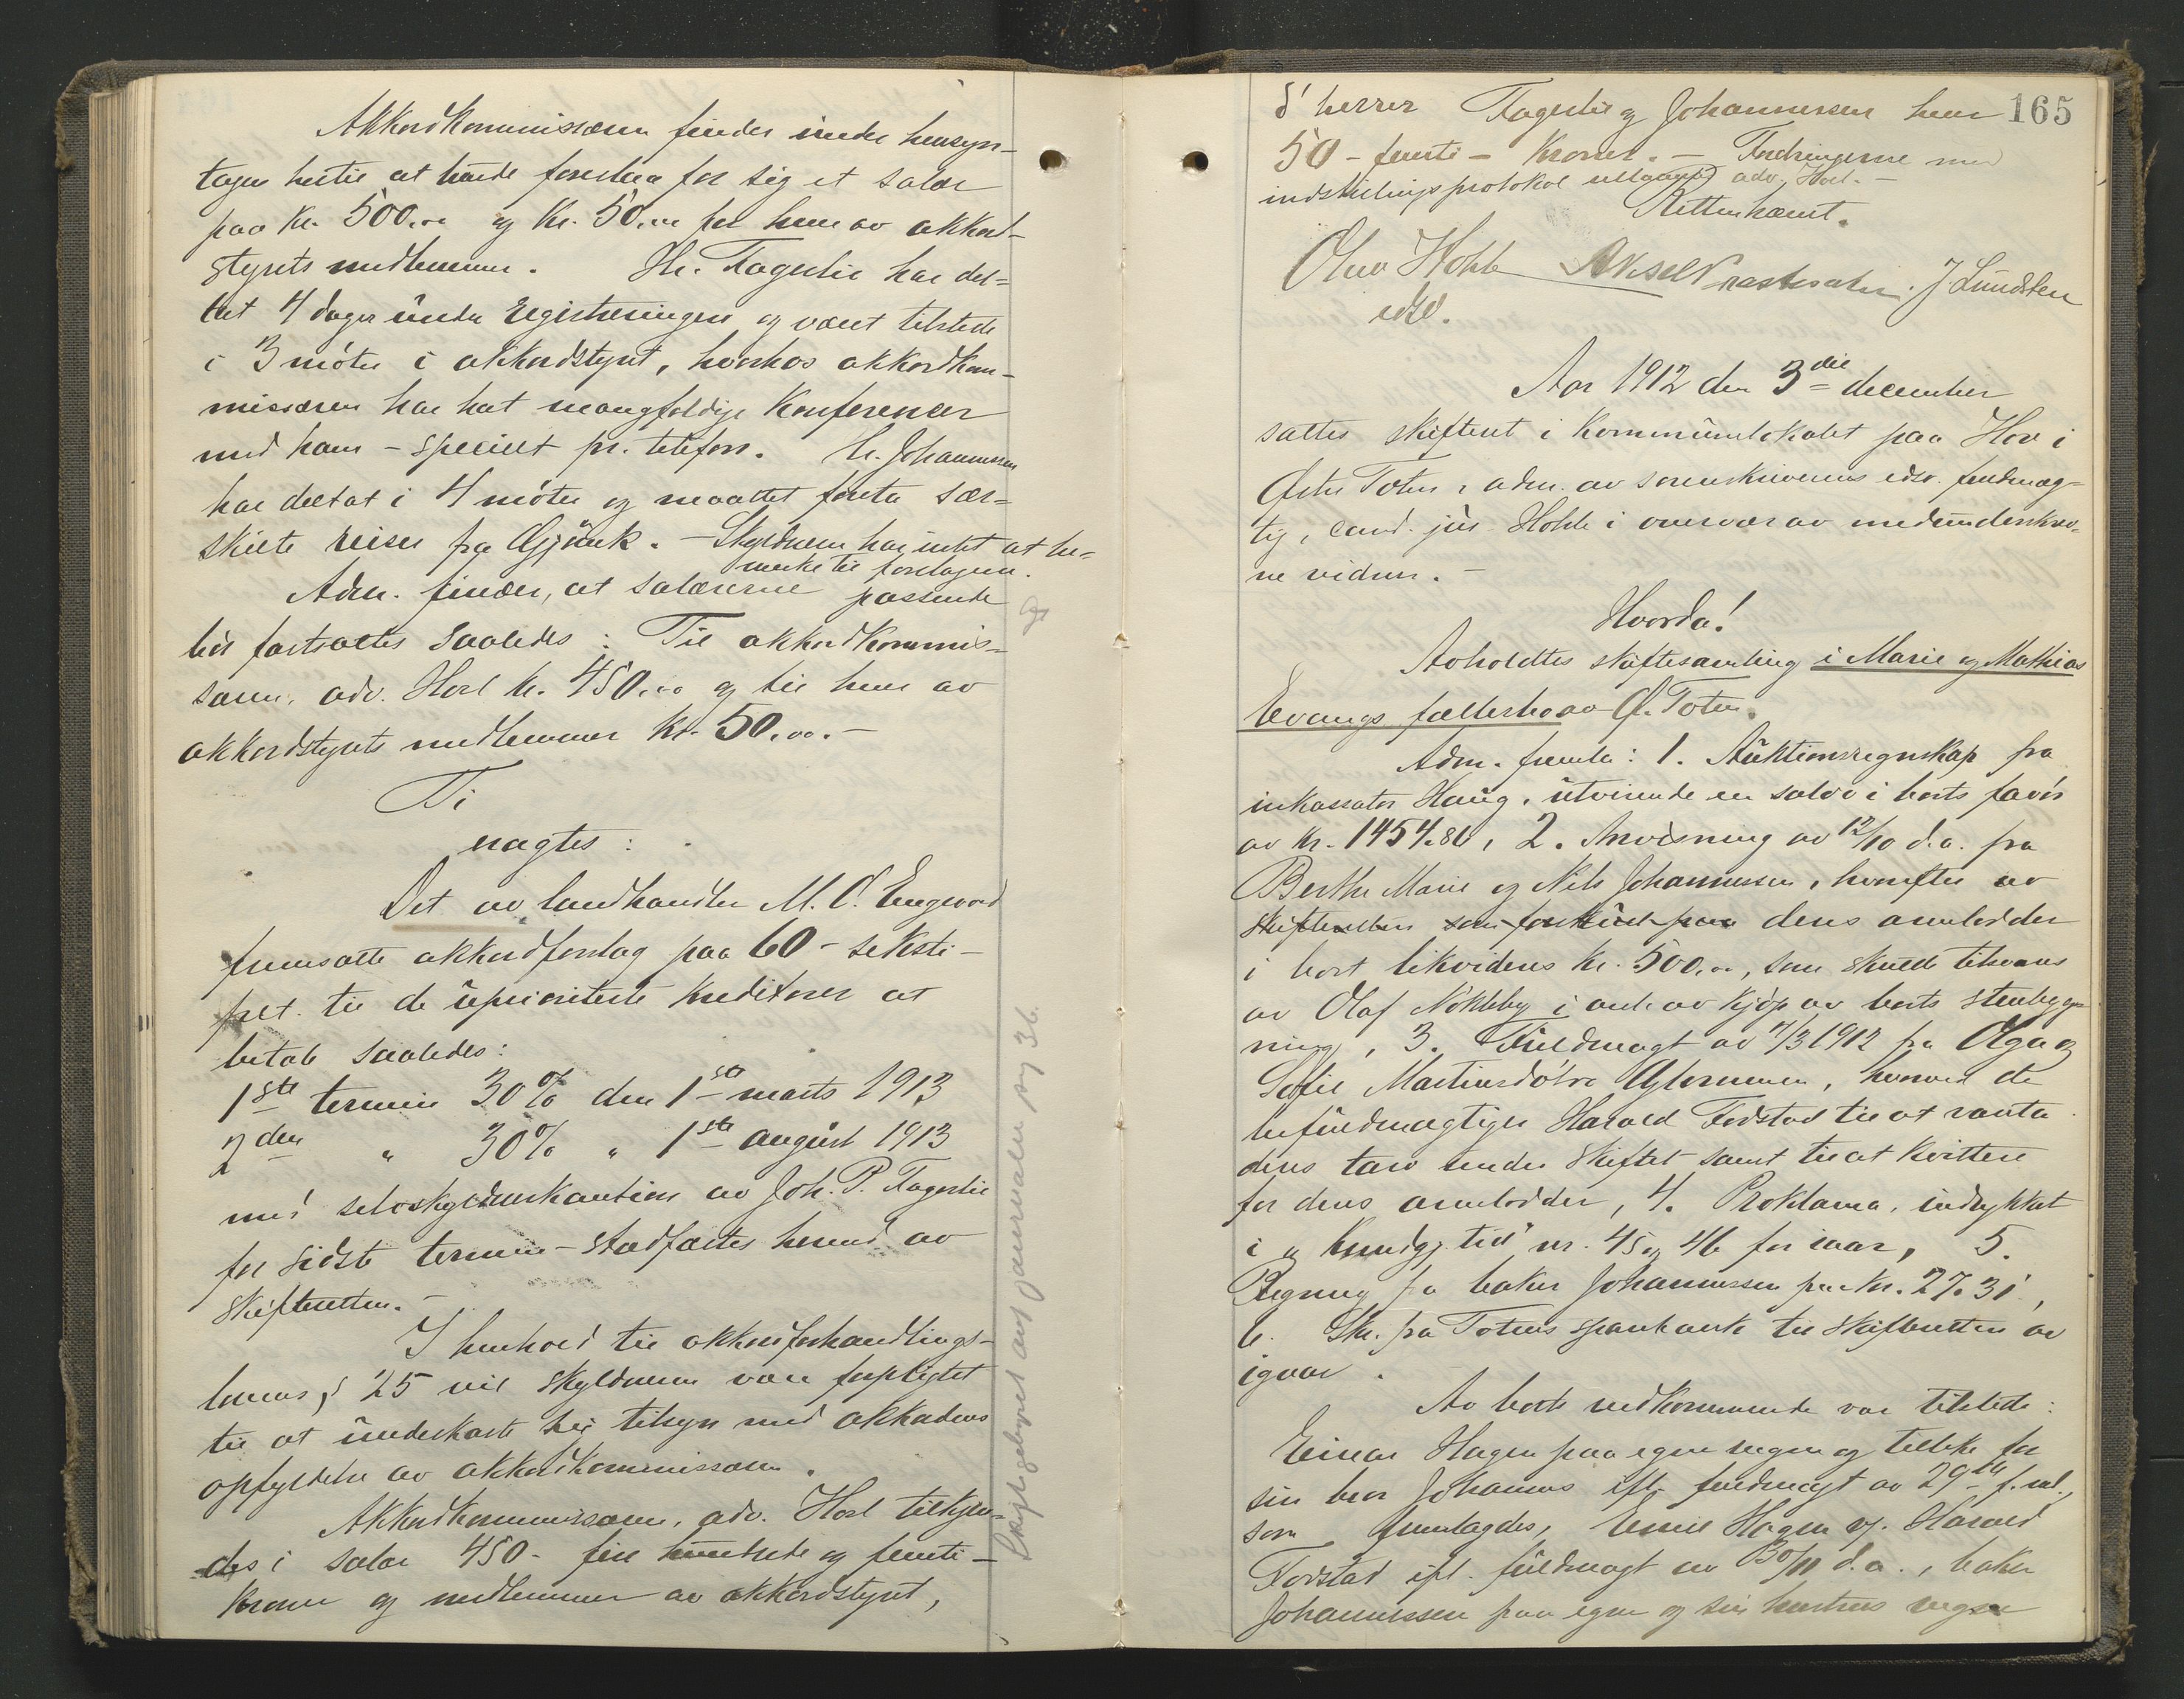 Akkordkommissæren finder under hensyn-
tagen hertil at burde foreslaa for sig et salær
paa Kr. 500.00 og Kr. 50.00 for hver av akkord-
styrets medlemmer. Hr. Fagerlie har del-
tat 4 dager under registreringen og været tilstede
i 3 møter i akkordstyret, hvorhos akkordkom-
missæren har hat mangfoldige konferencer
med ham - specielt pr. telefon. Hr. Johannessen
har deltat i 4 møter og maattet foreta sær-
skilte reiser fra Gjøvik. - Skyldneren har intet at be-
merke til forslagene.
Adm. finder, at salærerne passende
bør fastsættes saaledes: Til akkordkommis-
særen, adv. Horl kr. 450.00 og til hver av
akkordstyrets medlemmer kr. 50.00. -
Ti
eragtes:
Det av landhandler M. O. Engevold
fremsatte akkordforslag paa 60 - seksti -
pct. til de uprioriterte kreditorer at
betale saaledes:
1ste termin 30% den 1ste marts 1913
2den " 30% " 1ste august 1913
med selvskyldnerkaution av Joh. P. Fagerlie
for sidste termin - stadfæstes herved av
skifteretten. -
I henhold til akkordforhandlings-
lovens § 25 vil skyldneren være forpligtet
til at underkaste sig tilsyn med akkordens
opfyldelse av akkordkommissæren.
Akkordkommissæren, adv. Horl tilkjen-
des i salær 450 - fire hundrede og femti -
kroner og medlemmer av akkordstyret,
165
d'herrer Fagerlie og Johannessen hver
50 - femti - kroner. - Fordringerne med
indstillingsprotokol utlaant adv. Horl. -
Retten hævet.
Olav Hohle Aksel J. Lundsten
edsv.
Aar 1912 den 3die december
sattes skifteret i Kommunelokalet paa Hov i
Østre Toten, adm. av sorenskriverens edsv. fuldmæg-
tig, cand. jur. Hohle i overvær av medunderskrev-
ne vidner. -
Hvorda!
Avholdtes skiftesamling i Marie og Mathias
Evangs fællesbo av Ø. Toten.
Adm. fremla: 1. Auktionsregnskap fra
inkassator Haug, utvisende en saldo i boets favør
av kr. 1454.86, 2. Anvisning av 12/10 d.a. fra
Berthe Marie og Nils Johannessen, hvorefter av
skifteretten som forskud paa deres arvelodder
i boet likvideres kr. 500.00, som skulde tilsvares
av Olaf Nøkleby i anl. av kjøp av boets stenbyg-
ning, 3. Fuldmagt av 4/3 1912 fra Olga og
Sofie Martinsdøtre, hvorved de
befuldmægtiger Harald Fodstad til at vareta
deres tarv under skiftet samt til at kvittere
for deres arvelodder, 4. Proklama, indrykket
i "Kundgj. tid" nr. 45 og 46 for iaar, 5.
Regning fra baker Johannessen paa kr. 27.31,
6. Skr. fra Totens sparebank til skifteretten av
igaar.
Av boets vedkommende var tilstede:
Einar Hagen paa egne vegne og tillike for
sin bror Johannes ifl. fuldmagt av 29de f.m.,
som fremlagdes, Emil Hagen v/ Harald
Fodstad ifl. fuldmagt av 30/11 d.a., baker
Johannessen paa egne og sin hustrus vegne